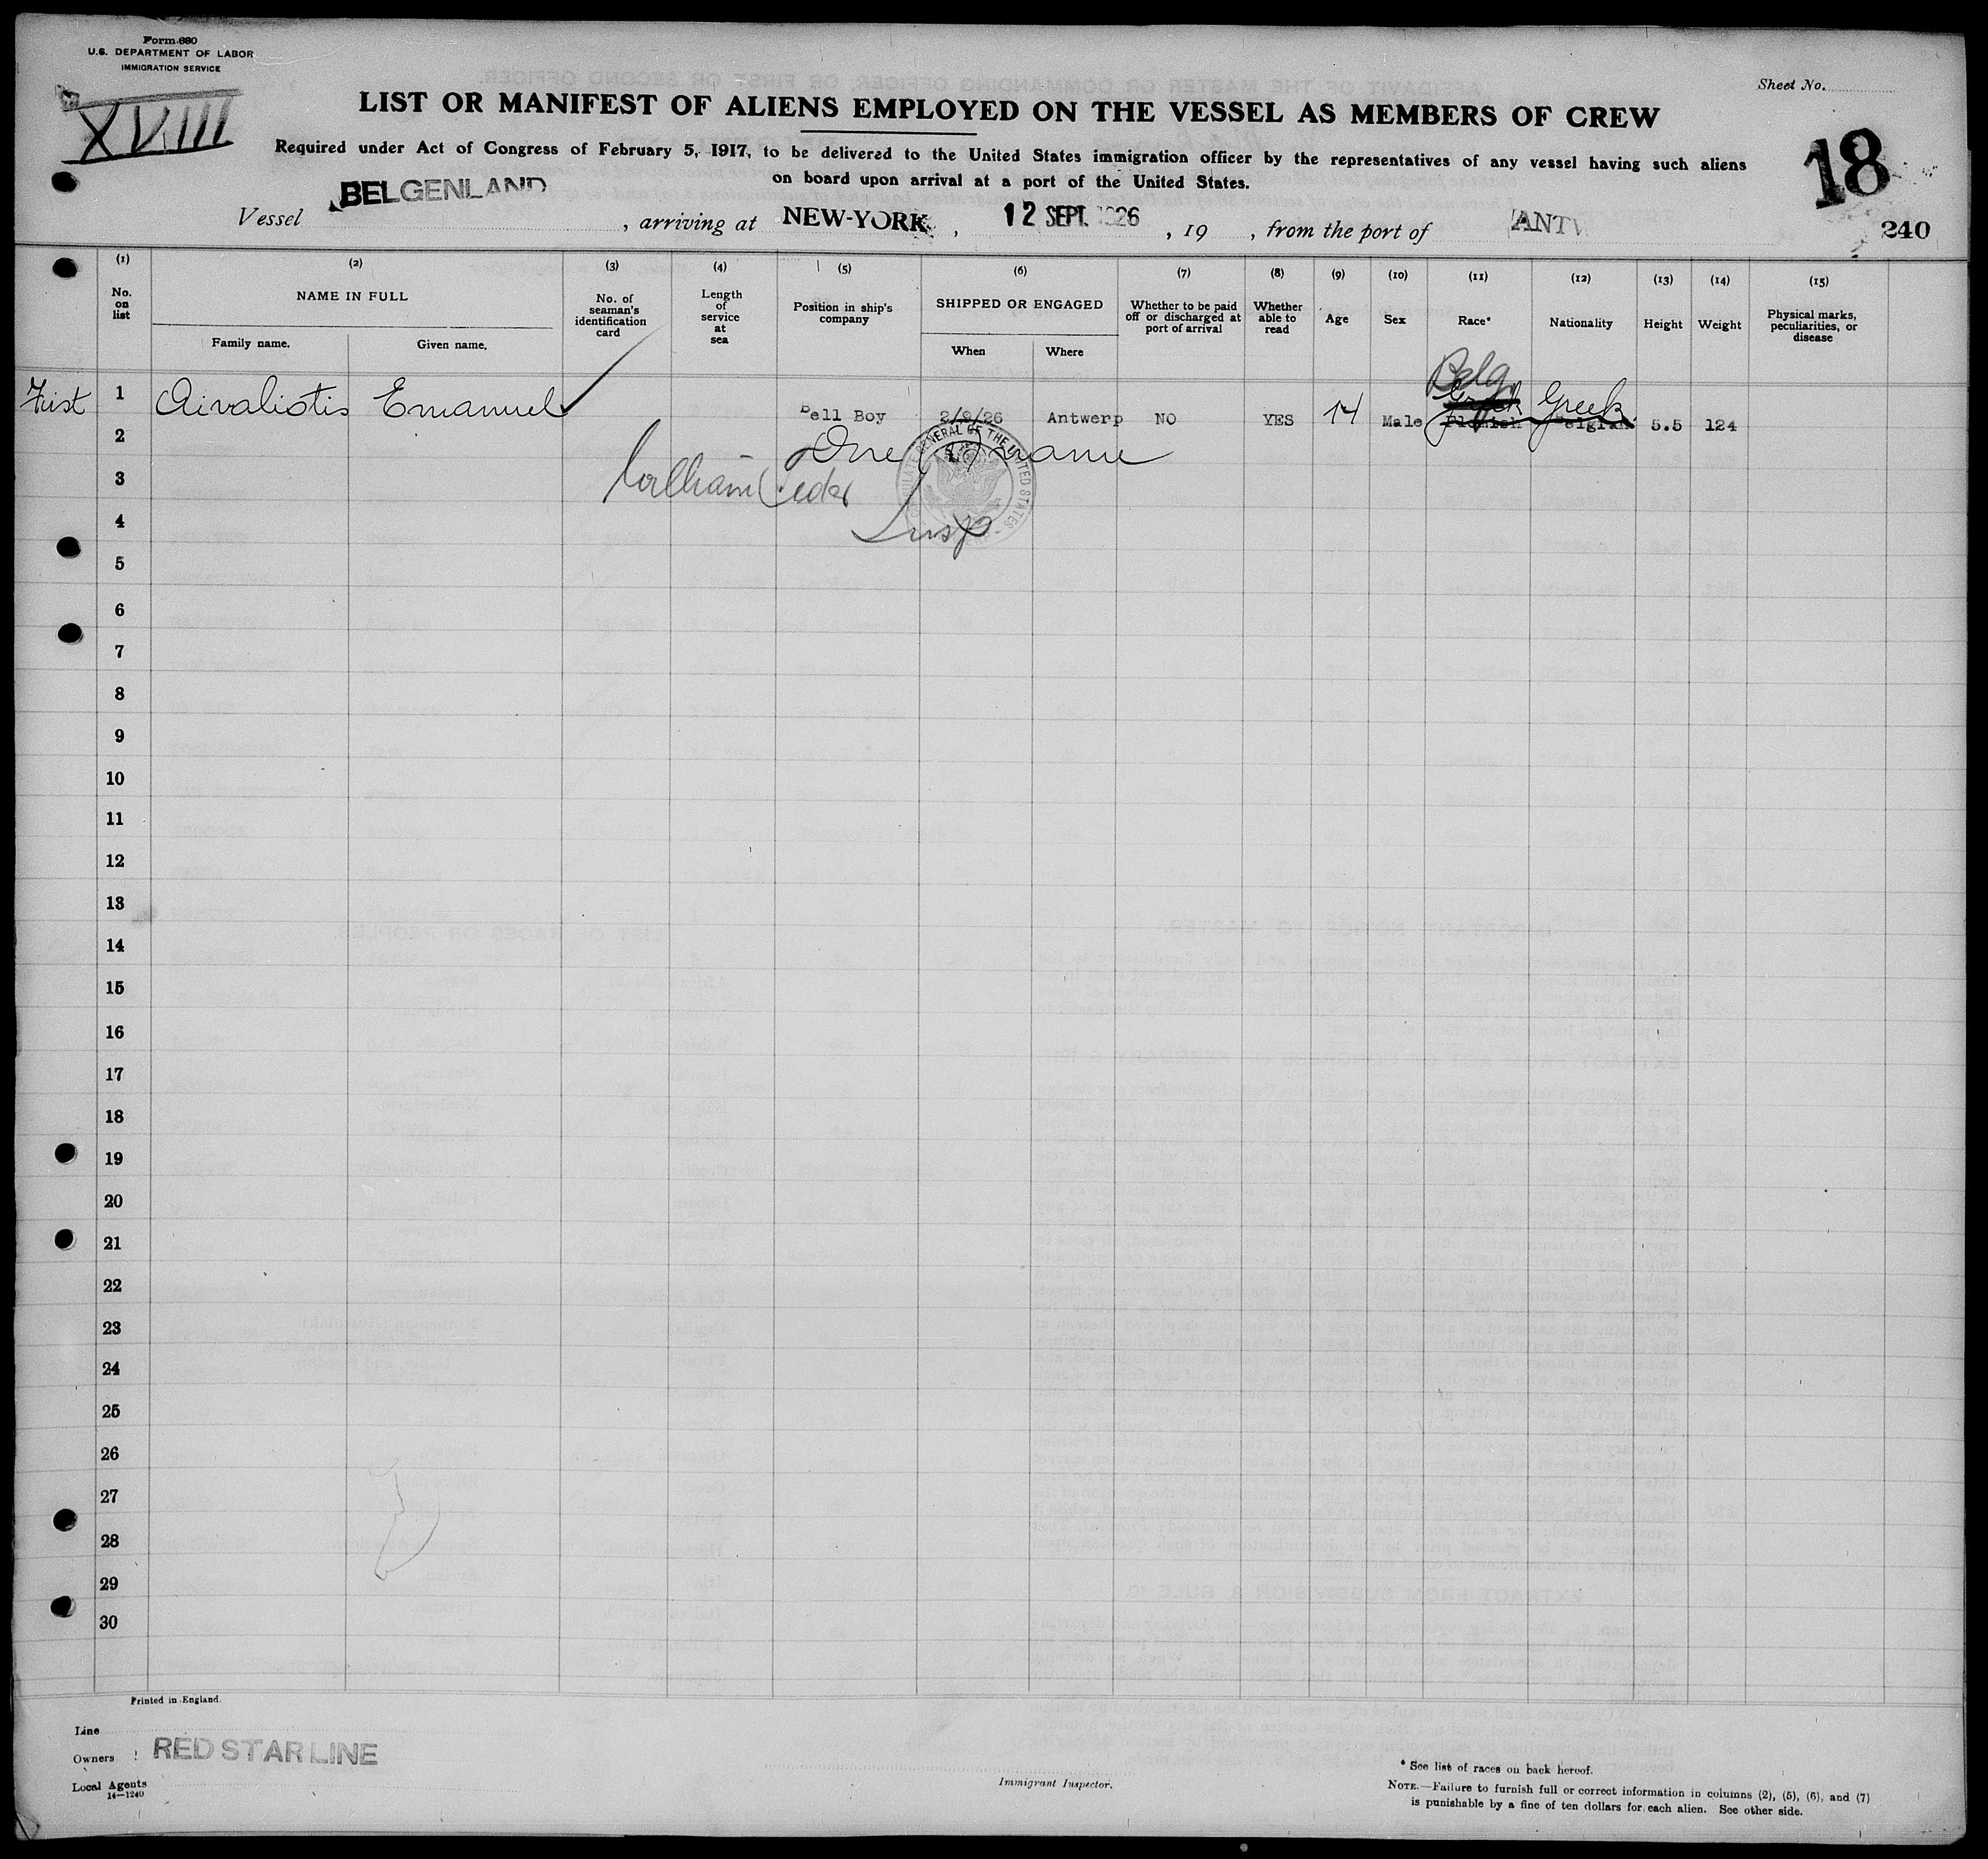 Form 680
U.S. DEPARTMENT OF LABOR
IMMIGRATION SERVICE
Sheet No.
XVIII
LIST OR MANIFEST OF ALIENS EMPLOYED ON THE VESSEL AS MEMBERS OF CREW
18
Required under Act of Congress of February 5, 1917, to be delivered to the United States immigration officer by the representatives of any vessel having such aliens
on board upon arrival at a port of the United States.
Vessel BELGENLAND, arriving at NEW-YORK, 12 SEPT. 1926, 19 , from the port of ANTW
240
(1) (2) (3) (4) (5) (6) (7) (8) (9) (10) (11) (12) (13) (14) (15)
No. on list NAME IN FULL No. of seaman's identification card Length of service at sea Position in ship's company SHIPPED OR ENGAGED Whether to be paid off or discharged at port of arrival Whether able to read Age Sex Race* Nationality Height Weight Physical marks, peculiarities, or disease
Family name. Given name. When Where
Belg.
First 1 Aivaliotis Emanuel Bell Boy 2/9/26 Antwerp NO YES 14 Male Greek Flemish Greek Belgian 5.5 124
2 One (1) name
3 William
4 Insp
5
6
7
8
9
10
11
12
13
14
15
16
17
18
19
20
21
22
23
24
25
26
27
28
29
30
Printed in England.
Line
Owners RED STAR LINE
Local Agents
14—1240
Immigrant Inspector.
* See list of races on back hereof.
NOTE.—Failure to furnish full or correct information in columns (2), (5), (6), and (7)
is punishable by a fine of ten dollars for each alien. See other side.